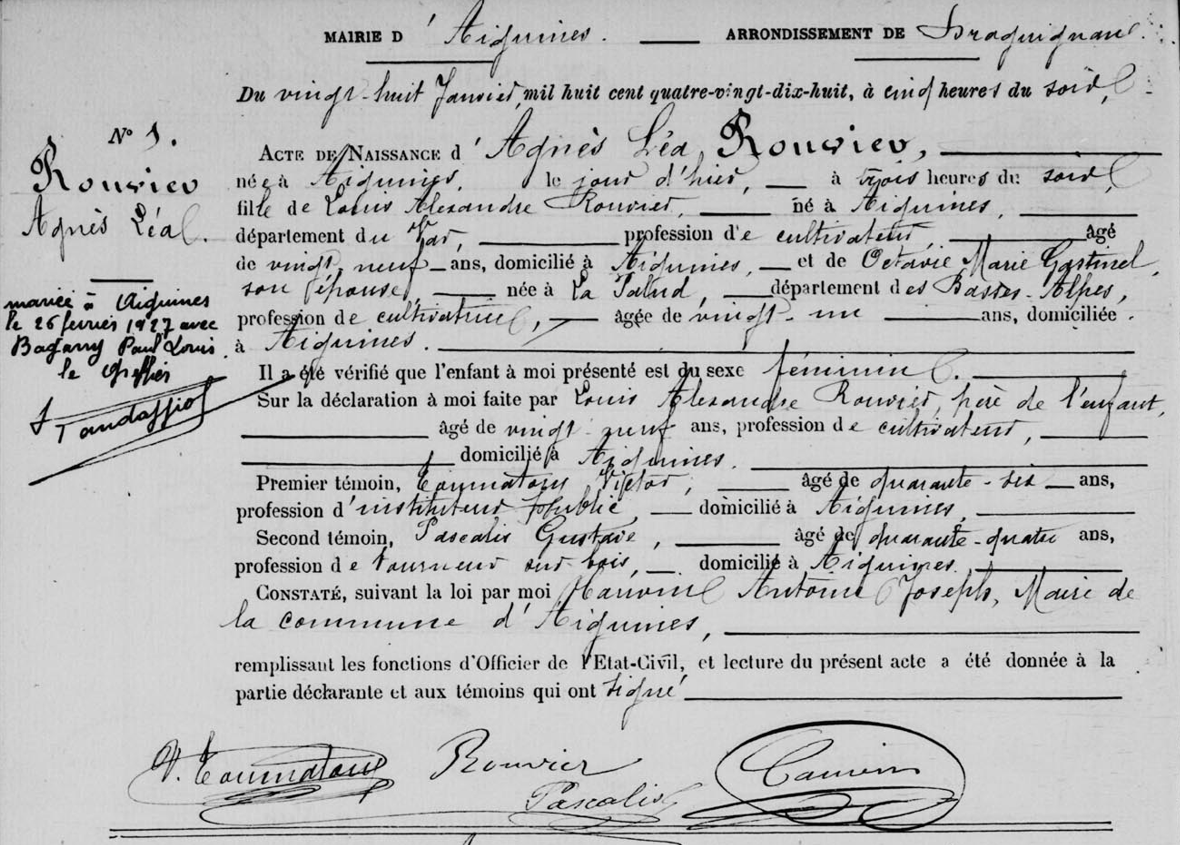 MAIRIE D'Aiguines. ARRONDISSEMENT DE Draguignan.
Du vingt-huit Janvier, mil huit cent quatre-vingt-dix-huit, à cinq heures du soir,
N° 1.
Rouvier
Agnès Léa.
mariée à Aiguines
le 26 février 1927 avec
Bagarry Paul Louis.
le Greffier
ACTE DE NAISSANCE d'Agnès Léa Rouvier,
née à Aiguines, le jour d'hier, à trois heures du soir,
fille de Louis Alexandre Rouvier, né à Aiguines,
département du Var, profession de cultivateur, âgé
de vingt neuf ans, domicilié à Aiguines, et de Octavie Marie Gastinel,
son épouse, née à La Palud, département des Basses-Alpes,
profession de cultivatrice, âgée de vingt-un ans, domiciliée
à Aiguines.
Il a été vérifié que l'enfant à moi présenté est du sexe féminin.
Sur la déclaration à moi faite par Louis Alexandre Rouvier, père de l'enfant,
âgé de vingt-neuf ans, profession de cultivateur,
domicilié à Aiguines.
Premier témoin, Victor, âgé de quarante-six ans,
profession d'instituteur public, domicilié à Aiguines,
Second témoin, Pascalis Gustave, âgé de quarante-quatre ans,
profession de tourneur sur bois, domicilié à Aiguines.
CONSTATÉ, suivant la loi par moi Antoine Joseph, Maire de
la commune d'Aiguines,
remplissant les fonctions d'Officier de l'Etat-Civil, et lecture du présent acte a été donnée à la
partie déclarante et aux témoins qui ont signé
Rouvier
Pascalis